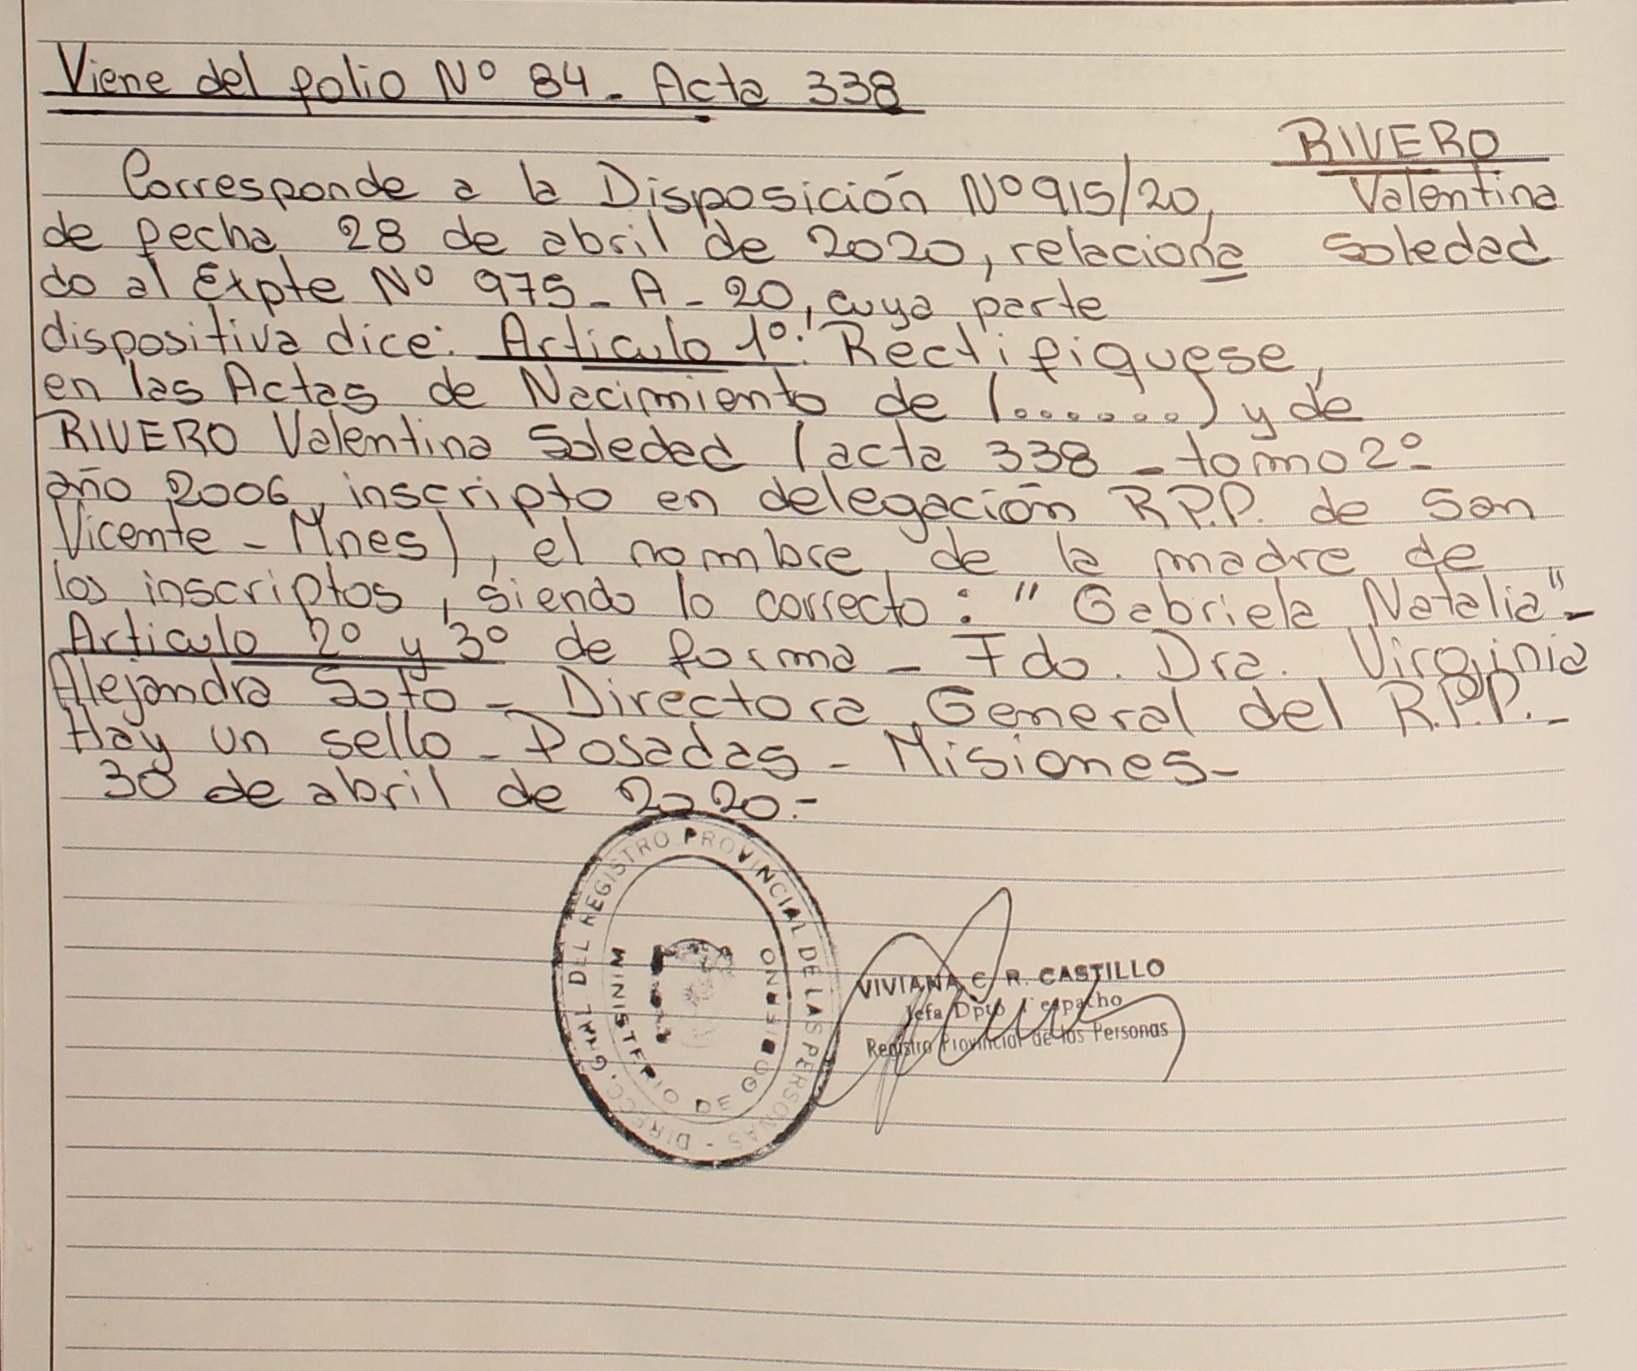 Viene del folio Nº 84 - Acta 338
RIVERO
Valentina
Soledad
Corresponde a la Disposición Nº 915/20,
de fecha 28 de abril de 2020, relaciona
do al Expte Nº 975 - A - 20, cuya parte
dispositiva dice: Articulo 1º: Rectifiquese,
en las Actas de Nacimiento de (.......) y de
RIVERO Valentina Soledad (acta 338 - tomo 2º -
año 2006, inscripto en delegación R.P.P. de San
Vicente - Mnes), el nombre de la madre de
los inscriptos, siendo lo correcto: "Gabriela Natalia" -
Articulo 2º y 3º de forma - Fdo. Dra. Virginia
Alejandra Soto - Directora General del R.P.P. -
Hay un sello - Posadas - Misiones -
30 de abril de 2020 =
DIRECC. GRAL DEL REGISTRO PROVINCIAL DE LAS PERSONAS -
MINISTERIO DE GOBIERNO
VIVIANA C. R. CASTILLO
Jefa Dpto espacho
Registro Provincial de las Personas